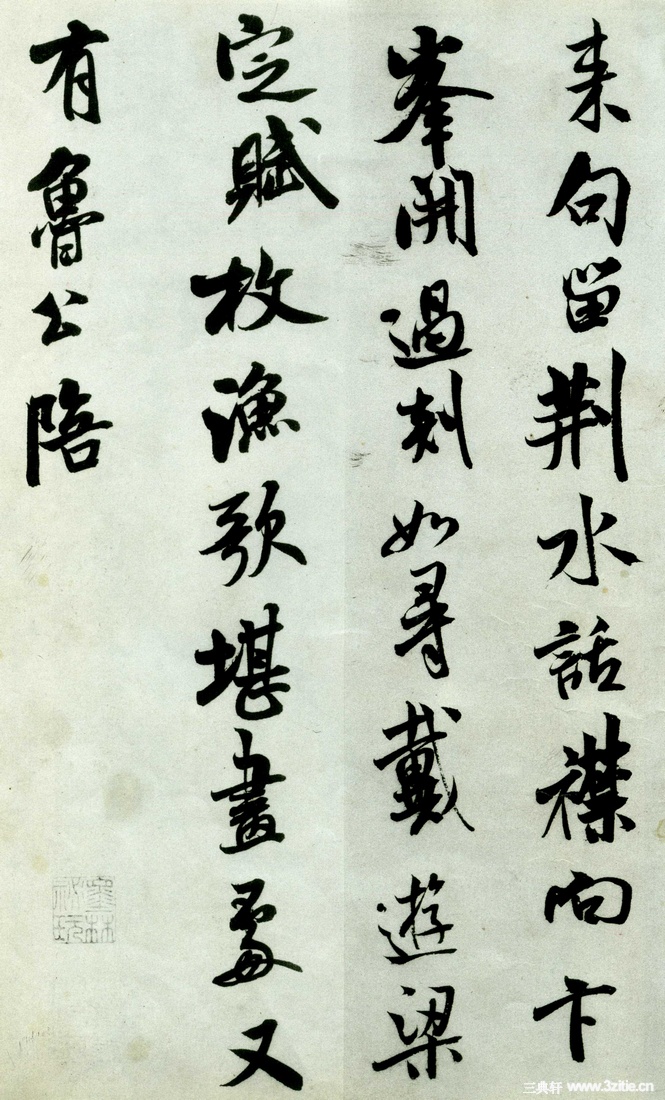 来句留荆水話襟向卞
峯開過剡如尋戴遊梁
定賦枚漁歌堪畫處又
有魯公陪
三典轩 www.3zitie.cn